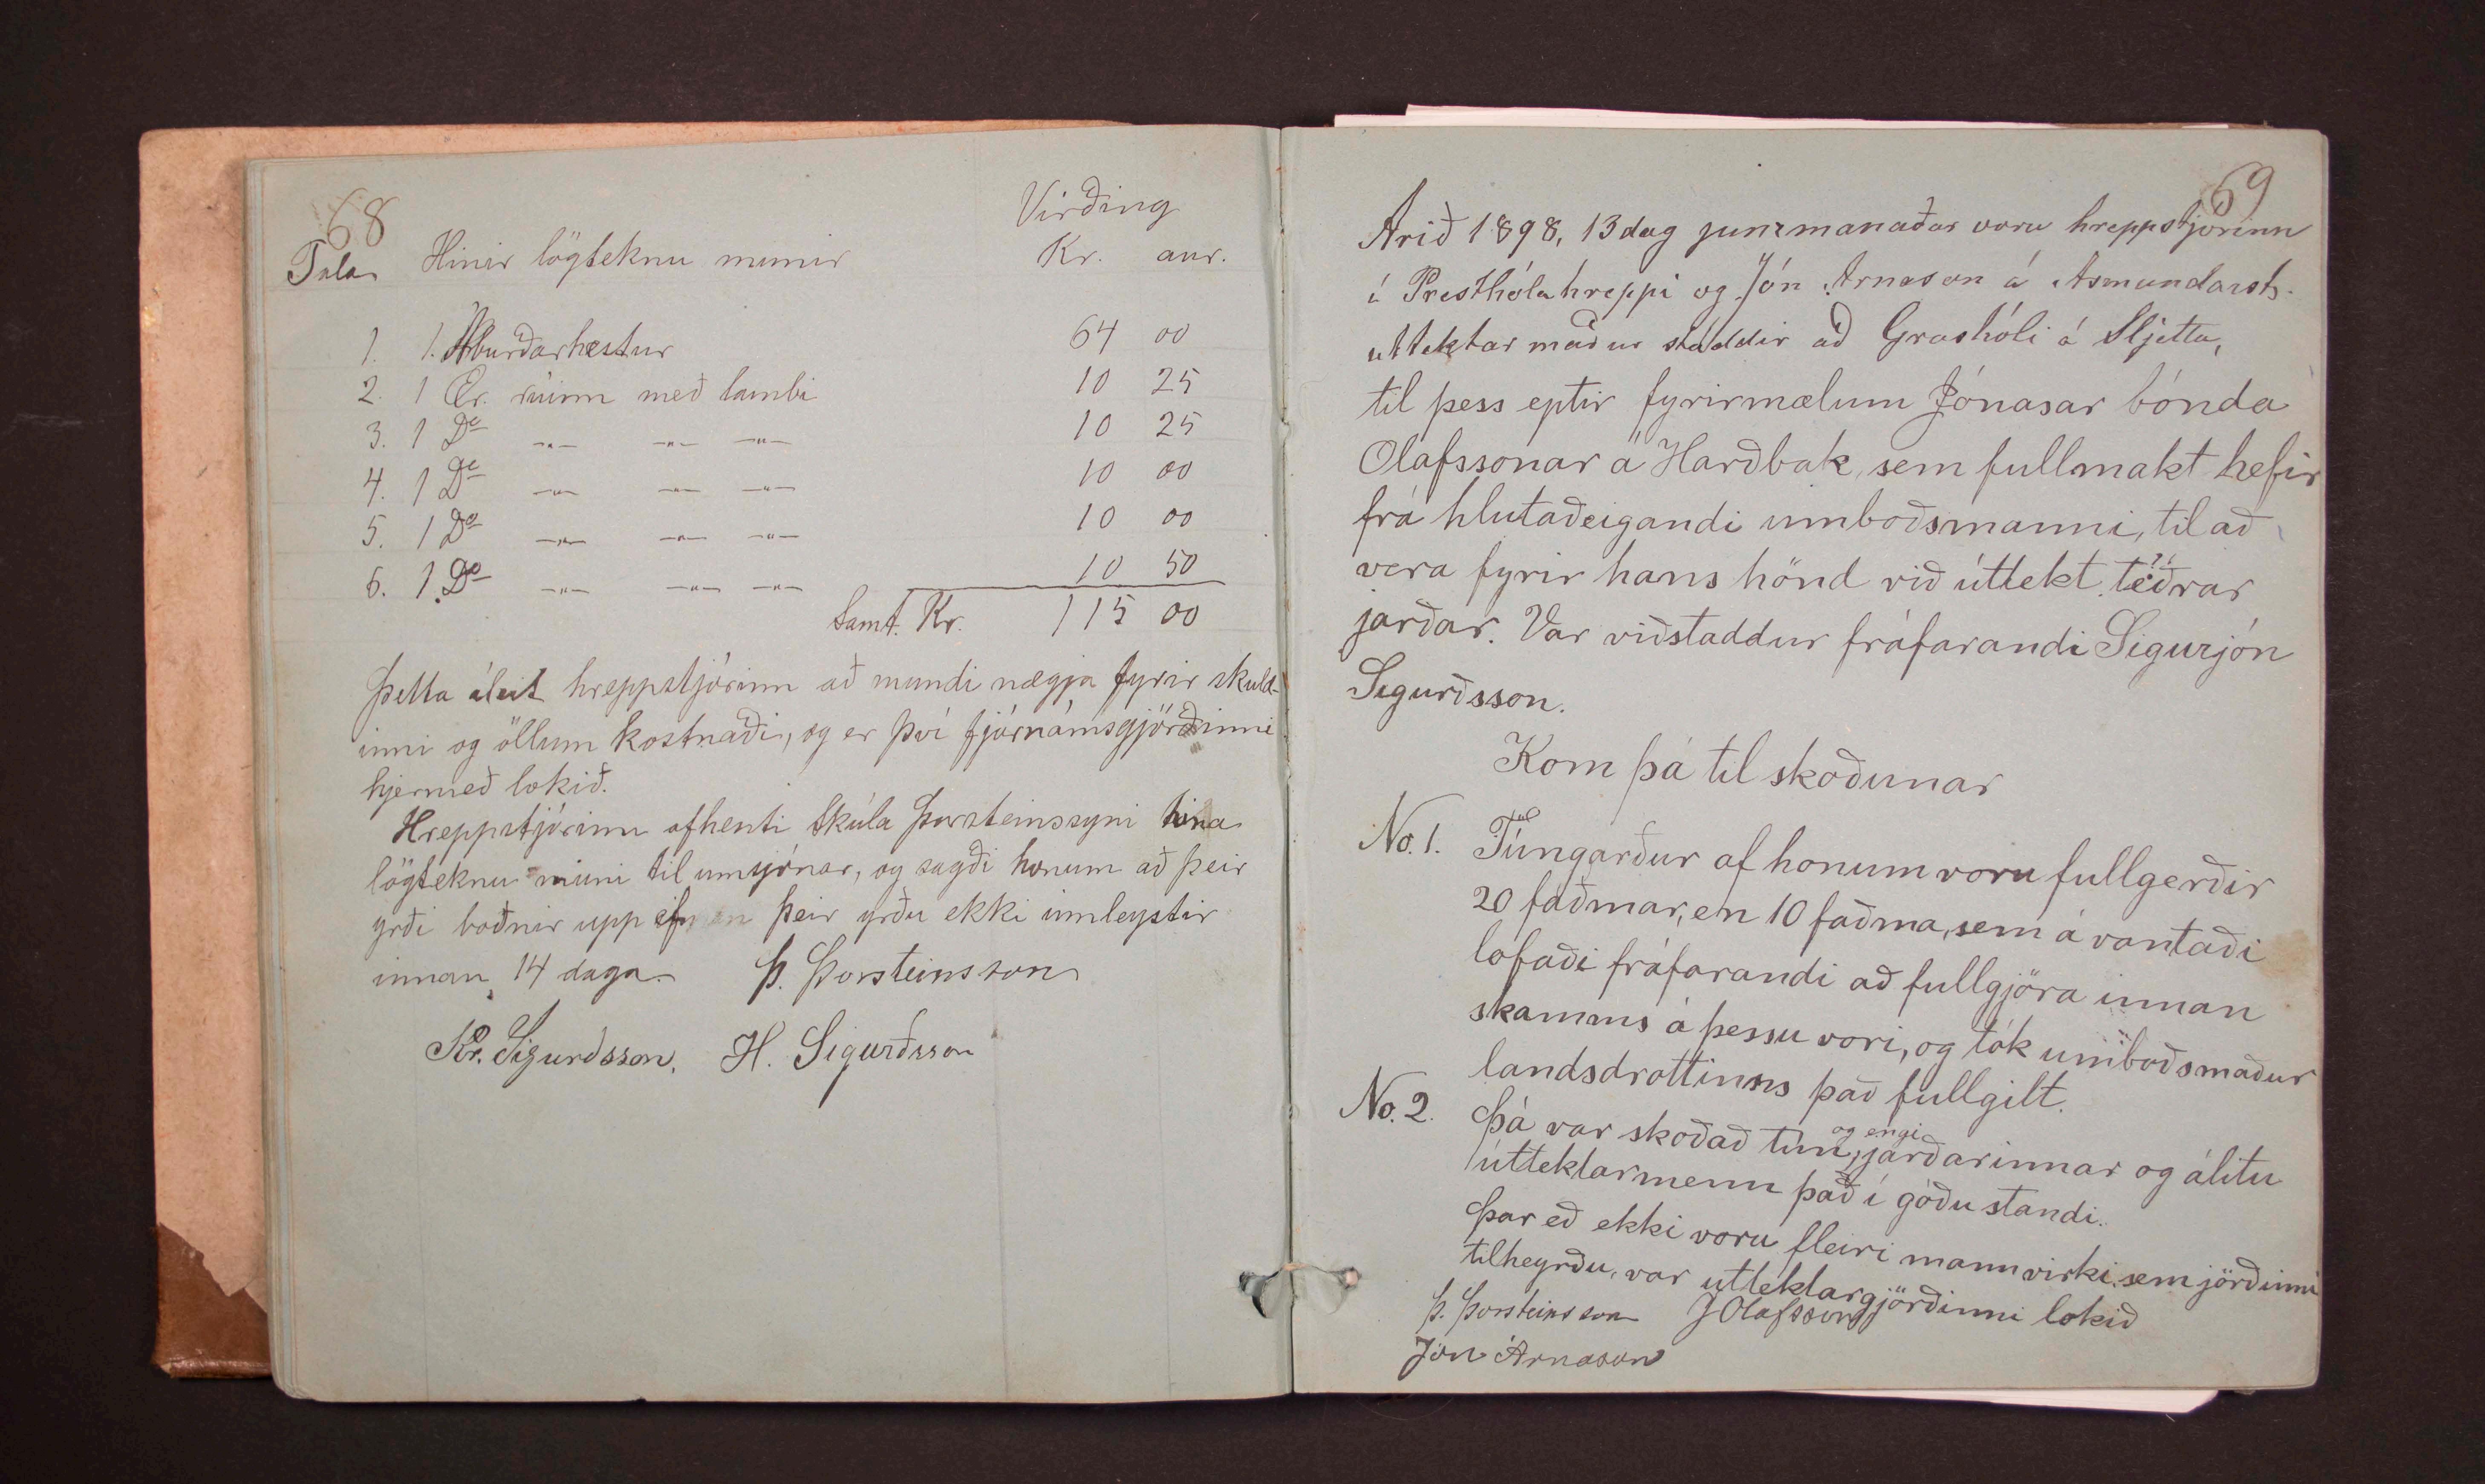 68
Virðing
Tala Hinir lögteknu munir Kr. aur.
1. 1. Áburðarhestur 64 00
2. 1 Ær. rúinn með lambi 10 25
3. 1 Do -"- -"- -"- 10 25
4. 1 Do -"- -"- -"- 10 00
5. 1 Do -"- -"- -"- 10 00
6. 1. Do -"- -"- -"- 10 50
Samt. Kr. 115 00
Þetta áleit hreppstjórinn að mundi nægja fyrir skuld-
inni og öllum kostnaði, og er því fjárnámsgjörðinni
hjermeð lokið.
Hreppstjórinn afhenti Skúla Þorsteinssyni hina
lögteknu muni til umsjónar, og sagði honum að þeir
yrði boðnir upp ef þeir yrðu ekki innleystir
innan 14 daga. Þ. Þorsteinsson
Kr. Sigurdsson. H. Sigurðsson
69
Arið 1898, 13 dag junimanaðar voru hreppstjórinn
í Presthólahreppi og Jón Arnason á Asmundarst.
uttektarmaður staddir að Grashóli á Sljetta,
til þess eptir fyrirmælum Jónasar bónda
Olafssonar á Harðbak, sem fullmakt hefir
frá hlutaðeigandi umboðsmanni, til að
vera fyrir hans hönd við úttekt téðrar
jarðar. Var viðstaddur fráfarandi Sigurjón
Sigurðsson.
Kom þá til skoðunar
No. 1. Túngarður af honum voru fullgerðir
20 faðmar, en 10 faðma, sem á vantaði
lofaði fráfarandi að fullgjöra innan
skamms á þessu vori, og tók umboðsmaður
landsdrottinns það fullgilt.
No. 2. Þá var skoðað tún og engi jarðarinnar og álitu
úttektarmenn það í góðu standi.
Þar eð ekki voru fleiri mannvirki sem jörðinni
tilheyrðu, var uttektargjörðinni lokið
Þ. Þorsteinsson J Olafsson
Jón Árnason